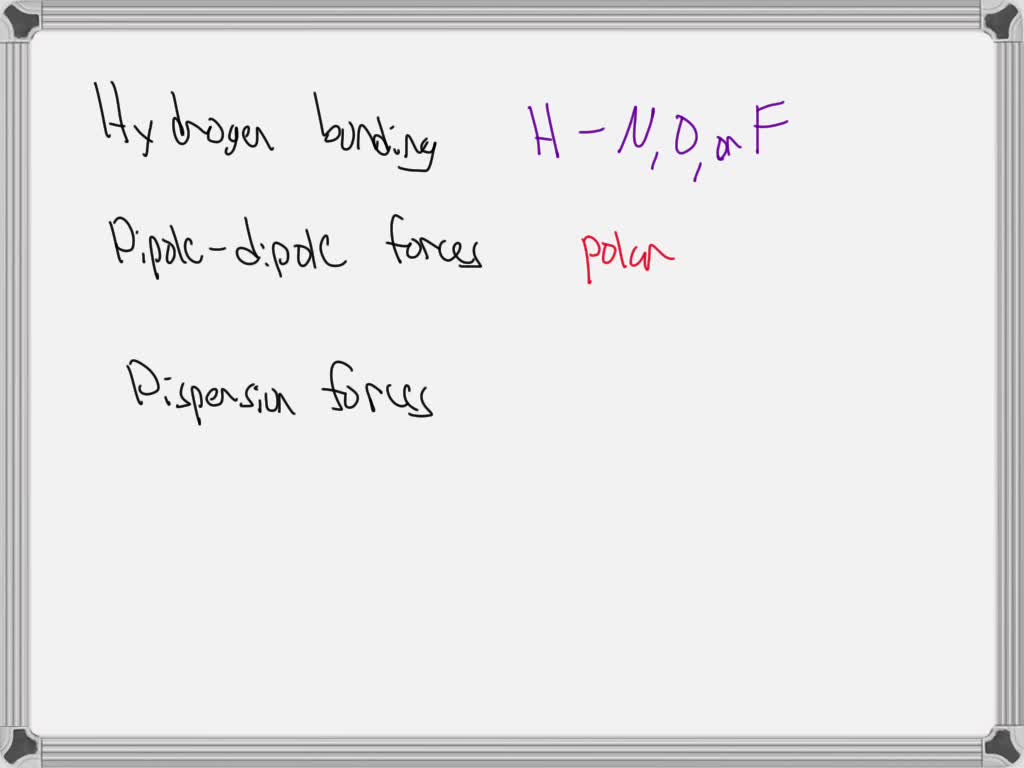 Hydrogen bonding H - N, O, or F
Dipole-dipole forces polar
Dispersion forces